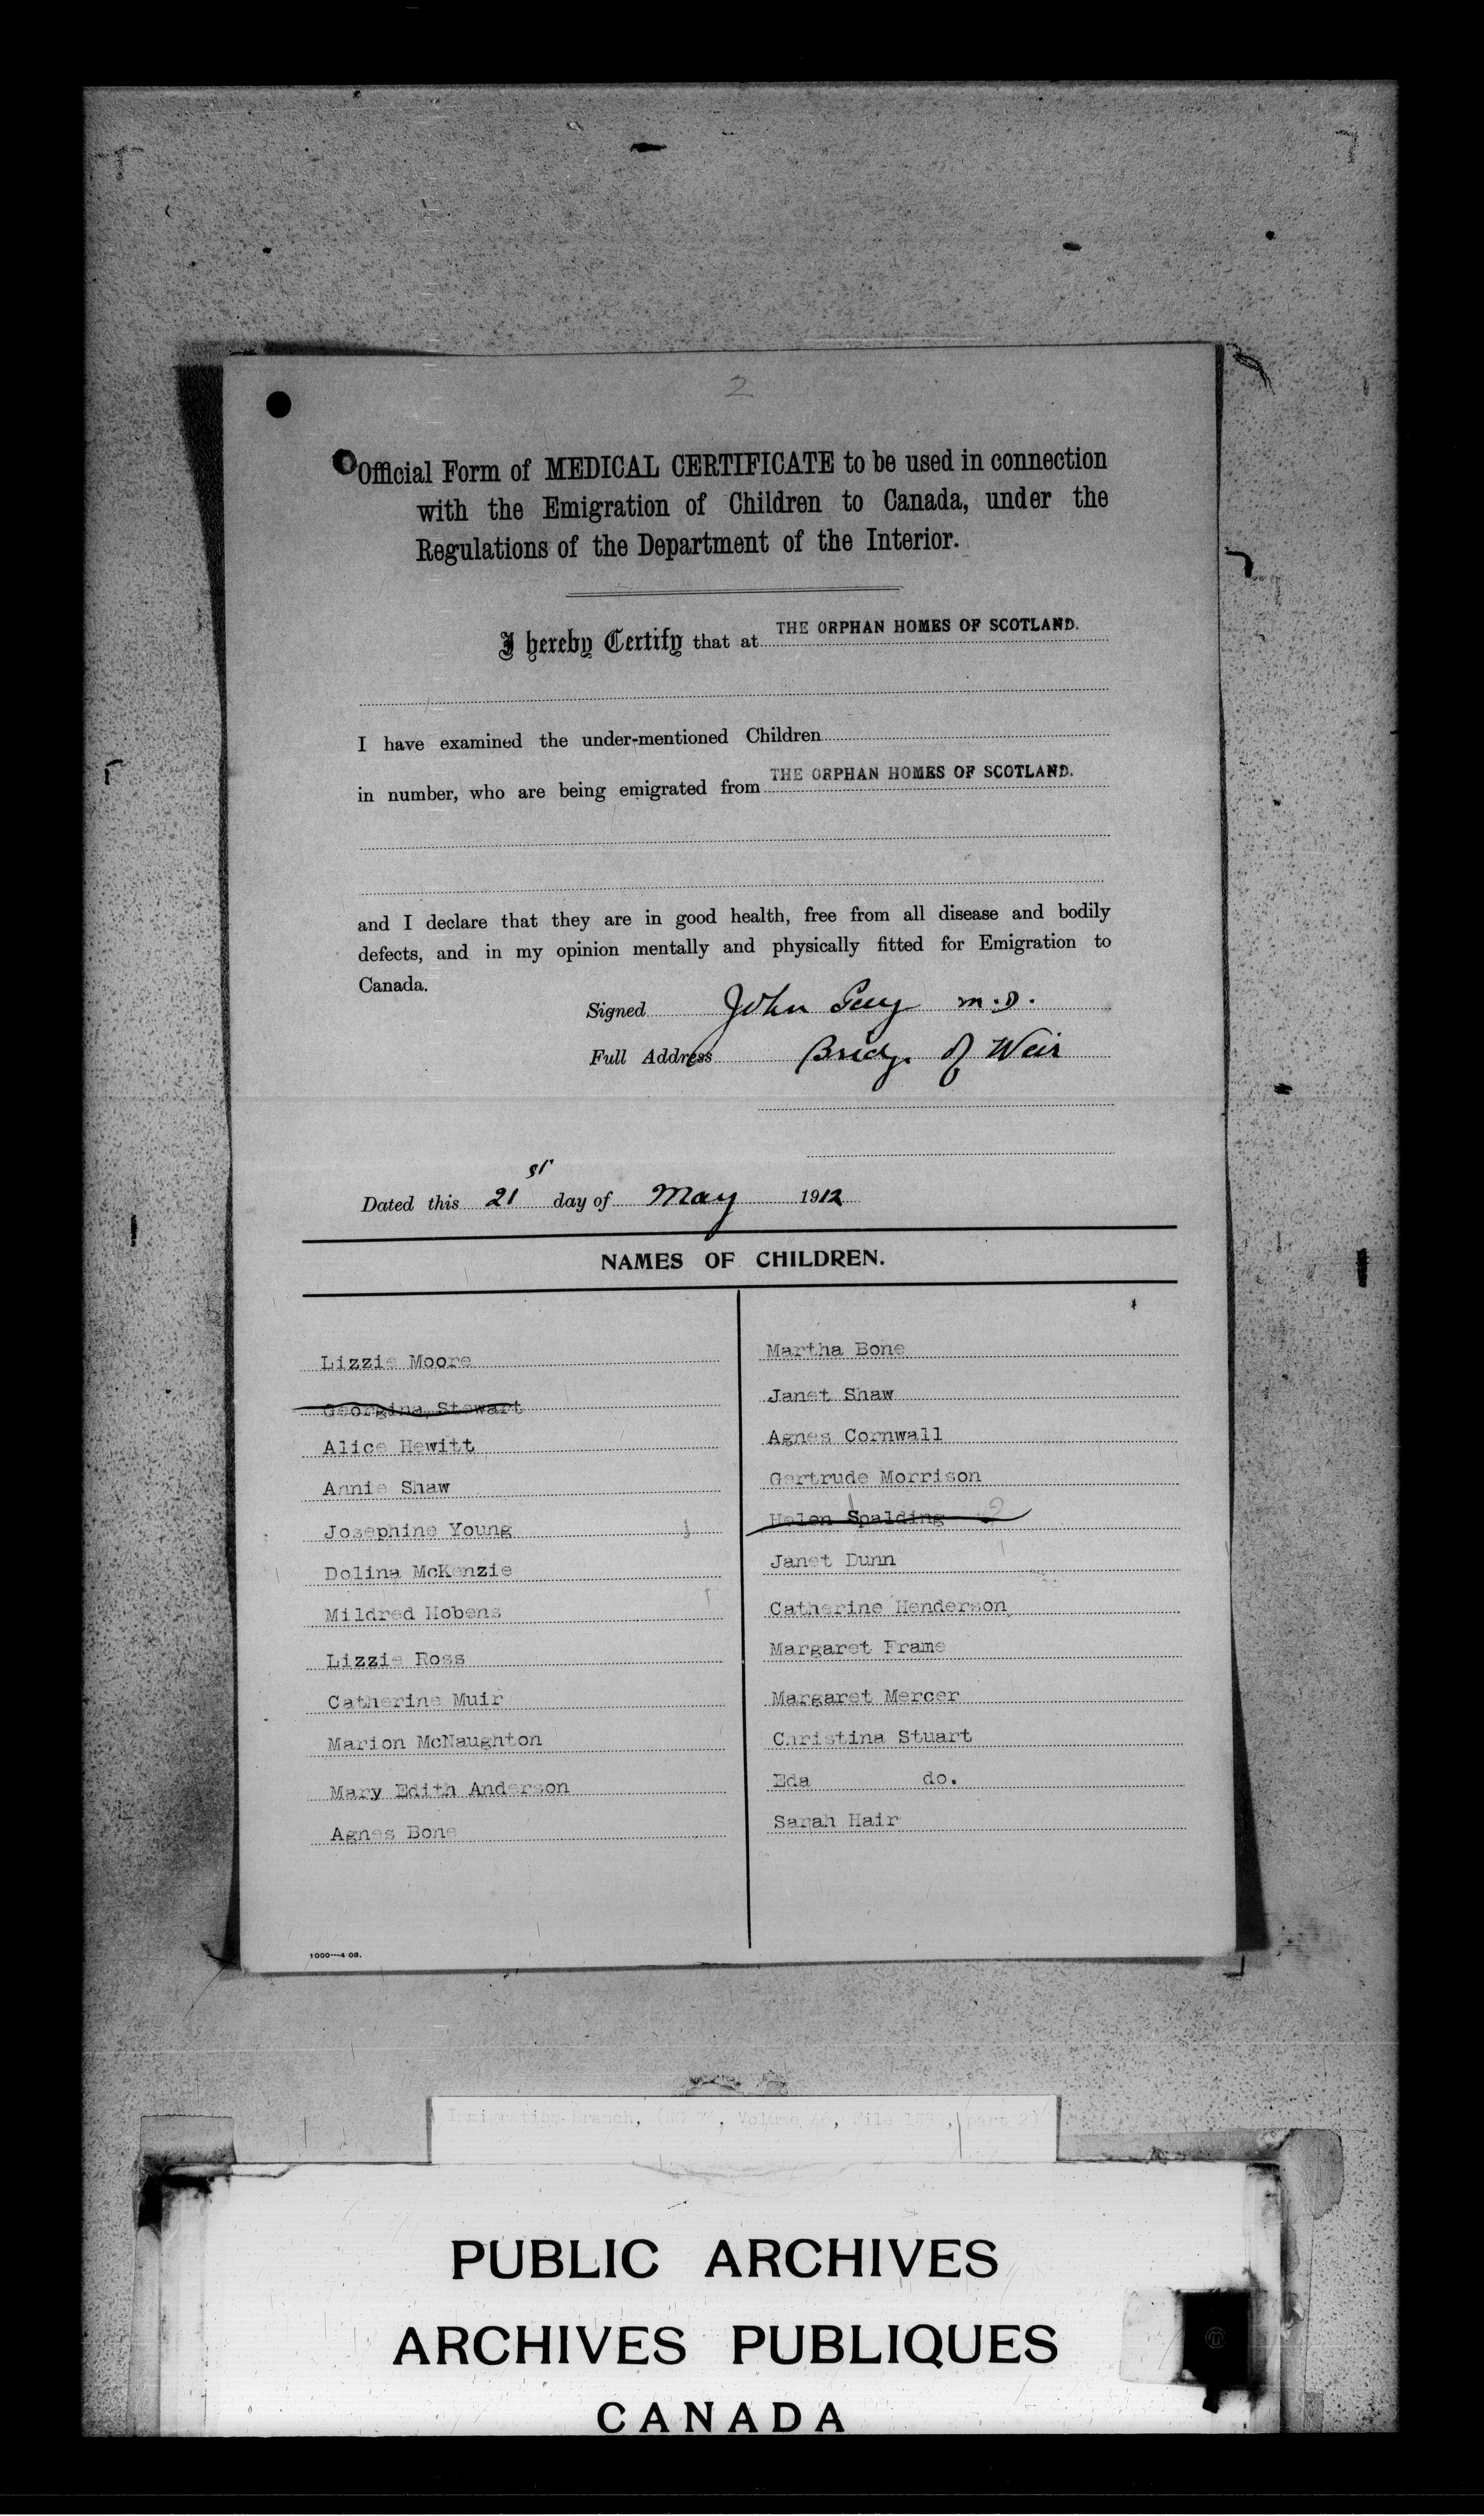 2
Official Form of MEDICAL CERTIFICATE to be used in connection
with the Emigration of Children to Canada, under the
Regulations of the Department of the Interior.
I hereby Certify that at THE ORPHAN HOMES OF SCOTLAND.
I have examined the under-mentioned Children
in number, who are being emigrated from THE ORPHAN HOMES OF SCOTLAND.
and I declare that they are in good health, free from all disease and bodily
defects, and in my opinion mentally and physically fitted for Emigration to
Canada.
Signed John M.D.
Full Address Bridge of Weir
Dated this 21st day of May 1912
NAMES OF CHILDREN.
Lizzie Moore
Georgina Stewart
Alice Hewitt
Annie Shaw
Josephine Young
Dolina McKenzie
Mildred Hobens
Lizzie Ross
Catherine Muir
Marion McNaughton
Mary Edith Anderson
Agnes Bone
Martha Bone
Janet Shaw
Agnes Cornwall
Gertrude Morrison
Helen Spalding 2
Janet Dunn
Catherine Henderson
Margaret Frame
Margaret Mercer
Christina Stuart
Eda do.
Sarah Hair
1000---4 08.
Immigration Branch, (RG , Volume , File , part 2)
PUBLIC ARCHIVES
ARCHIVES PUBLIQUES
CANADA